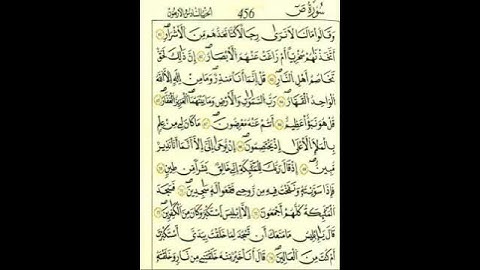 سُورَةُ صٓ 456 الحزب السادس والأربعون
وَقَالُوا۟ مَا لَنَا لَا نَرَىٰ رِجَالًا كُنَّا نَعُدُّهُم مِّنَ ٱلْأَشْرَارِ
أَتَّخَذْنَٰهُمْ سِخْرِيًّا أَمْ زَاغَتْ عَنْهُمُ ٱلْأَبْصَٰرُ إِنَّ ذَٰلِكَ لَحَقٌّ
تَخَاصُمُ أَهْلِ ٱلنَّارِ قُلْ إِنَّمَآ أَنَا۠ مُنذِرٌ وَمَا مِنْ إِلَٰهٍ إِلَّا ٱللَّهُ
ٱلْوَٰحِدُ ٱلْقَهَّارُ رَبُّ ٱلسَّمَٰوَٰتِ وَٱلْأَرْضِ وَمَا بَيْنَهُمَا ٱلْعَزِيزُ ٱلْغَفَّٰرُ
قُلْ هُوَ نَبَؤٌا۟ عَظِيمٌ أَنتُمْ عَنْهُ مُعْرِضُونَ مَا كَانَ لِىَ مِنْ عِلْمٍۭ
بِٱلْمَلَإِ ٱلْأَعْلَىٰٓ إِذْ يَخْتَصِمُونَ إِن يُوحَىٰٓ إِلَىَّ إِلَّآ أَنَّمَآ أَنَا۠ نَذِيرٌ
مُّبِينٌ إِذْ قَالَ رَبُّكَ لِلْمَلَٰٓئِكَةِ إِنِّى خَٰلِقٌۢ بَشَرًا مِّن طِينٍ
فَإِذَا سَوَّيْتُهُۥ وَنَفَخْتُ فِيهِ مِن رُّوحِى فَقَعُوا۟ لَهُۥ سَٰجِدِينَ فَسَجَدَ
ٱلْمَلَٰٓئِكَةُ كُلُّهُمْ أَجْمَعُونَ إِلَّآ إِبْلِيسَ ٱسْتَكْبَرَ وَكَانَ مِنَ ٱلْكَٰفِرِينَ
قَالَ يَٰٓإِبْلِيسُ مَا مَنَعَكَ أَن تَسْجُدَ لِمَا خَلَقْتُ بِيَدَىَّ أَسْتَكْبَرْتَ
أَمْ كُنتَ مِنَ ٱلْعَالِينَ قَالَ أَنَا۠ خَيْرٌ مِّنْهُ خَلَقْتَنِى مِن نَّارٍ وَخَلَقْتَهُۥ